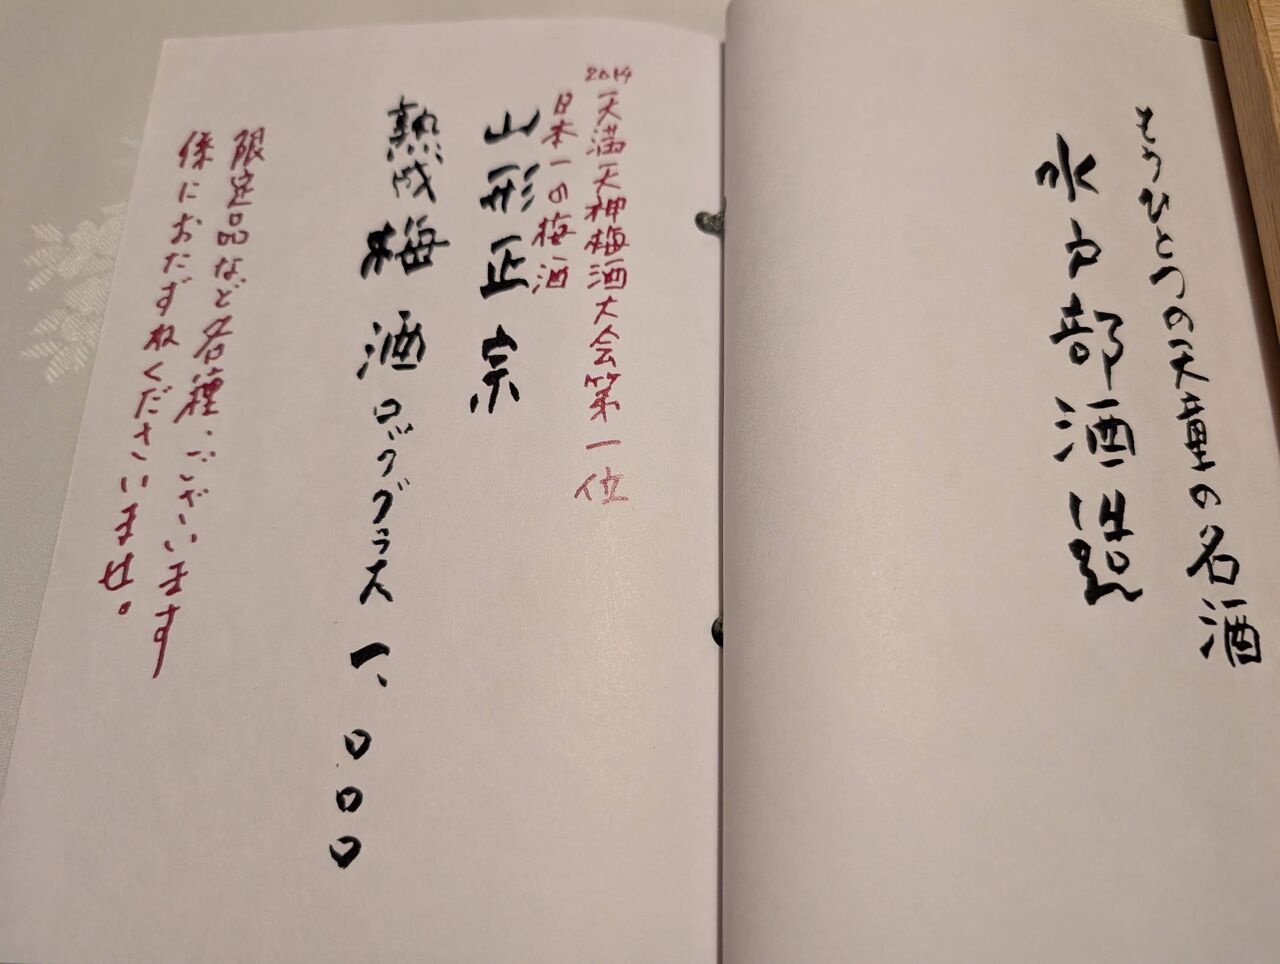 もうひとつの天童の名酒
水戸部酒造
2014 天満天神梅酒大会第一位
日本一の梅酒
山形正宗
熟成梅酒 ロックグラス 一、〇〇〇
限定品など各種ございます
係におたずねくださいませ。